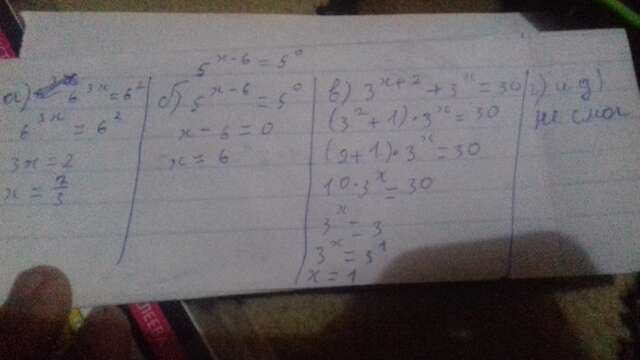 5^{x-6} = 5^0
а) 6^{3x} = 6^2
6^{3x} = 6^2
3x = 2
x = 2/3
б) 5^{x-6} = 5^0
x - 6 = 0
x = 6
в) 3^{x+2} + 3^x = 30
(3^2 + 1) · 3^x = 30
(9 + 1) · 3^x = 30
10 · 3^x = 30
3^x = 3
3^x = 3^1
x = 1
г) и д)
не смог